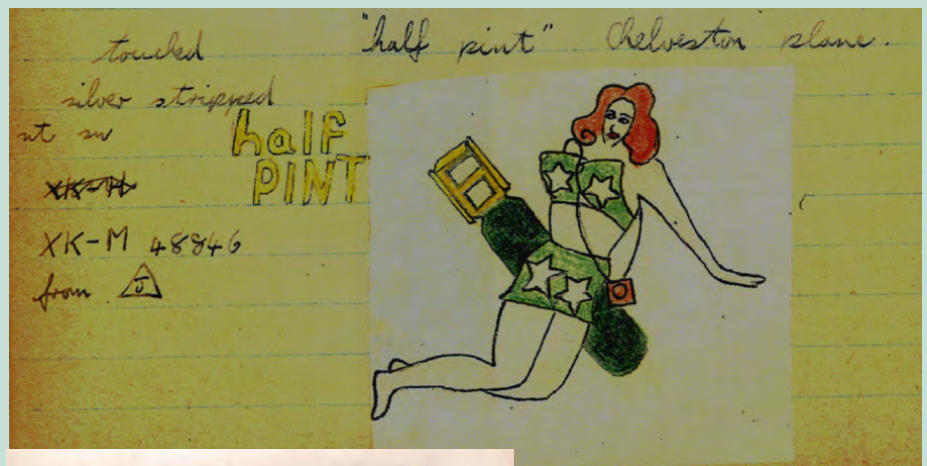 touched
"half pint" Chelveston plane.
silver stripped
half
PINT
XK-H
XK-M 48846
from J